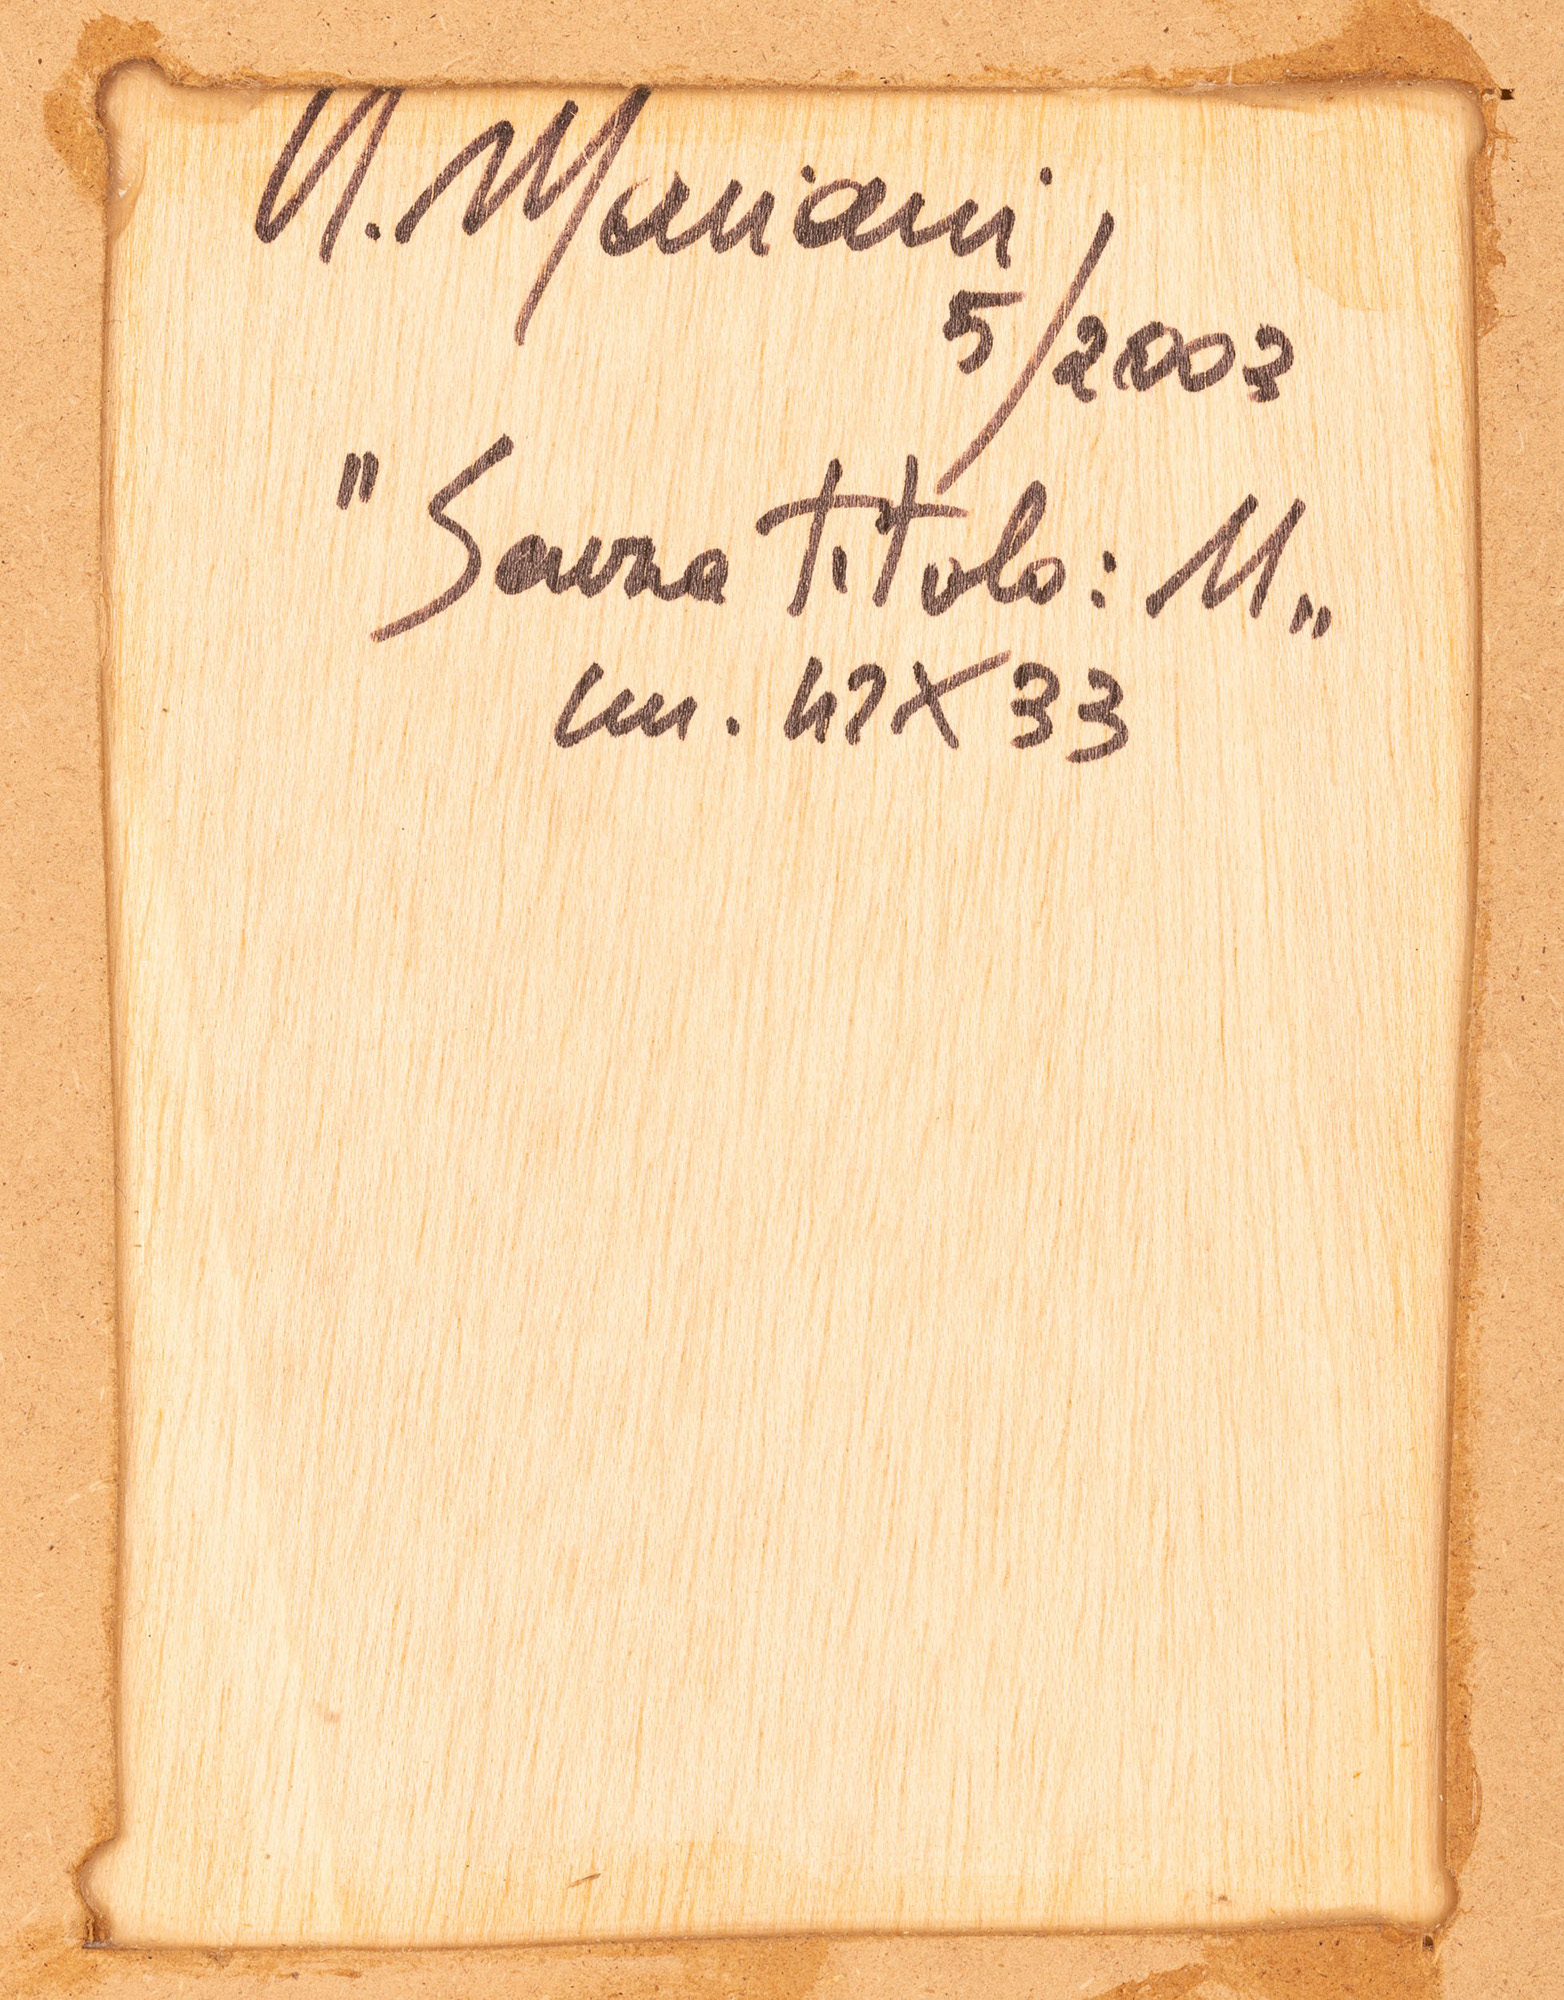 U. Mariani
5/2003
"Senza titolo: M"
cm. 47X33